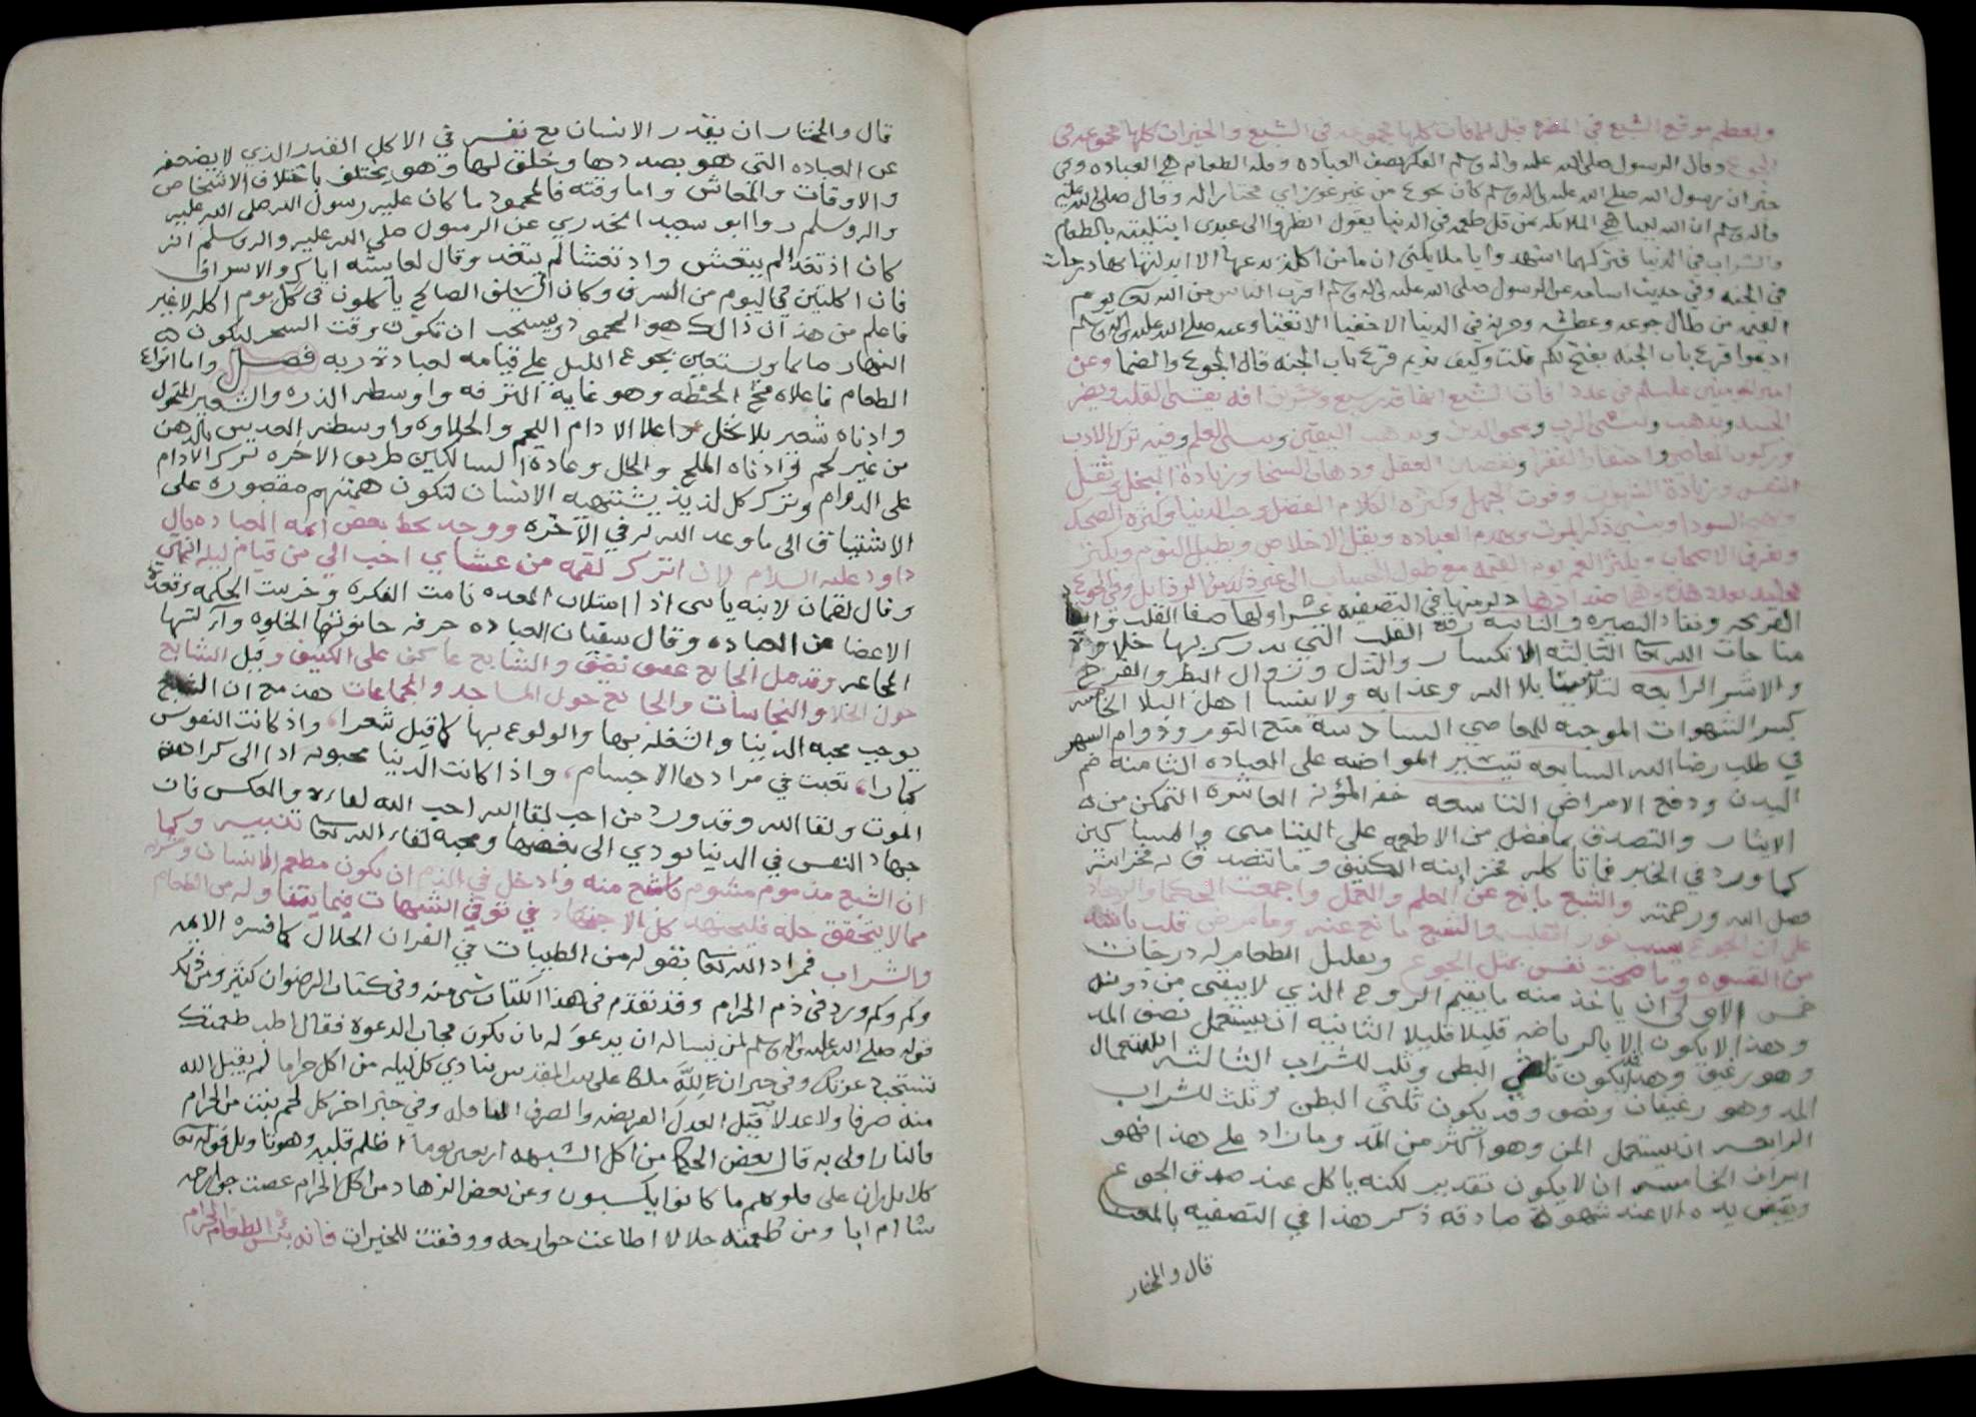 ولعظم موقع الشبع في المضره قيل الافات كلها مجموعه في الشبع والخيرات كلها مجموعه في
الجوع وقال الرسول صلى الله عليه واله وسلم الفكر نصف العباده وقله الطعام هي العباده وفي
خبر ان رسول الله صلى الله عليه واله وسلم كان يجوع من غير عوز اي مختارا له وقال صلى الله عليه
واله وسلم ان الله يباهي الملائكه بمن قل طعمه في الدنيا يقول انظروا الى عبدي ابتليته بالطعام
والشراب في الدنيا فتركهما اشهدوا يا ملائكتي ان ما من اكله يدعها الا ابدلته بها درجات
في الجنه وفي حديث اسامه عن الرسول صلى الله عليه واله وسلم اقرب الناس من الله يوم
القيمه من طال جوعه وعطشه وحزنه في الدنيا الاخفيا الاتقيا وعنه صلى الله عليه واله وسلم
اديموا قرع باب الجنه يفتح لكم قلت وكيف نديم قرع باب الجنه قال الجوع والضما وعن
امير المومنين عليه السلام في عدد افات الشبع انها قدر سبع وعشرين افه يقسي القلب ويضر
الجسد ويذهب ويمحو الدين ويذهب اليقين وينسي العلم وفيه ترك الادب
وركوب المعاصي واحتقار الفقرا ونقصان العقل وذهاب السخا وزيادة البخل وثقل
النفس وزيادة الشهوات وقوت الجهل وكثرة الكلام الفضل وحب الدنيا وكثرة الضحك
السودا وينسي ذكر الموت ويهدم العباده ويقل الاخلاص ويطيل النوم ويكثر
ويفرق الاصحاب ويكثر الغم يوم القيمه مع طول الحساب الى غير ذلك من الرذايل وفي الجوع
القريحه ونفاذ البصيره والثانيه رقة القلب التي يدرك بها حلاوة
مناجات الله تعالى الثالثه الانكسار والذل وزوال البطر والفرح
والاشر الرابعه لئلا ينسا بلا الله وعذابه ولا ينسا اهل البلا الخامسه
كسر الشهوات الموجبه للمعاصي السادسة منع النوم ودوام السهر
في طلب رضا الله السابعه تيسير المواضبه على العباده الثامنه ضم
البدن ودفع الامراض التاسعه خفه المؤنه العاشره التمكن من
الايثار والتصدق بما فضل من الاطعمه على اليتامى والمساكين
كما ورد في الخبر فاتاكله مخزانته الكنيف وما تتصدق له مخزانته
فضل الله ورحمته والشبع مانع عن العلم والعمل واجمعت الحكما والزهاد
على ان الجوع سبب نور القلب والشبع مانع عنه وما مرض قلب باشد
من القسوه وما صحت نفس بمثل الجوع وتقليل الطعام له درجات
خمس الاولى ان ياخذ منه ما يقيم الروح الذي لا يبقى من دونه
وهذا لا يكون الا بالرياضه قليلا قليلا الثانيه ان يستعمل نصف المد
وهو رغيف وهذا يكون ثلث البطن وثلث للشراب الثالثه استعمال
المد وهو رغيفان ونصف وقد يكون ثلثي البطن وثلث للشراب
الرابعه ان يستعمل المن وهو اكثر من المد وما زاد على هذا فهو
اسراف الخامسه ان لا يكون تقدير لكنه ياكل عند صدق الجوع
ويقبض يده الا عند شهوة صادقه ذكر هذا في التصفيه بالمعنا
قال والمختار
قال والمختار ان يقدر الانسان مع نفسه في الاكل القدر الذي لا يضعفه
عن العباده التي هو بصددها وخلق لها وهو يختلف باختلاف الاشخاص
والاوقات والمعاش واما وقته فالمحمود ما كان عليه رسول الله صلى الله عليه
واله وسلم روا ابو سعيد الخدري عن الرسول صلى الله عليه واله وسلم انه
كان اذ تغدا لم يتعش واذ تعشا لم يتغد وقال لعايشه اياكي والاسراف
فان اكلتين في اليوم من السرف وكان السلف الصالح ياكلون في كل يوم اكله لا غير
فاعلم من هذ ان ذالك هو المحمود ويستحب ان تكون وقت السحر ليكون في
النهار صائما ويستعين بجوع الليل على قيامه لعبادة ربه فصل واما انواع
الطعام فاعلاه مخ الحنطه وهو غاية الترفه واوسطه الذره والشعير المنخول
وادناه شعير بلا نخل واعلا الادام اللحم والحلاوه واوسطه العدس بالدهن
من غير لحم وادناه الملح والخل وعادة السالكين طريق الاخره ترك الادام
على الدوام وترك كل لذيذ يشتهيه الانسان لتكون همتهم مقصوره على
الاشتياق الى ما وعد الله له في الآخره ووجد بخط بعض ائمه العباده قال
داود عليه السلام لان اترك لقمه من عشاي احب الي من قيام ليله
وقال لقمان لابنه يابني اذا امتلات المعده نامت الفكره وخرست الحكمه وقعدت
الاعضا عن العباده وقال سفيان العباده حرفه حانوتها الخلوه وآلتها
المجاعه وقد مثل الجايع والشابع عاكف على الكنيف وقيل الشابع
حول الخلا والنجاسات والجايع حول المساجد والجماعات هذ مع ان الشبع
يوجب محبه الدينا والشغله بها والولوع بها كما قيل شعرا، واذ كانت النفوس
كبارا، تعبت في مرادها الاجسام، واذا كانت الدنيا محبوبه ادا الى كراهة
الموت ولقا الله وقد ورد من احب لقا الله احب الله لقاءه والعكس فان
جهاد النفس في الدنيا يودي الى بغضها ومحبه لقاء الله تعالى تنبيه وكما
ان الشبع مذموم مشوم فاشنع منه وادخل في الذم ان يكون مطعم الانسان ومشربه
مما لا يتحقق حله فليجتهد كل الاجتهاد في توقي الشبهات فيما يتناوله من الطعام
والشراب فمراد الله تعالى بقوله من الطيبات في القران الحلال كما فسره الايمه
وكم وكم ورد في ذم الحرام وقد تقدم في هذا الكتاب شي منه وفي كتاب الرضوان كثير ومن ذلك
قوله صلى الله عليه واله وسلم لمن يساله ان يدعو له بان يكون مجاب الدعوة فقال اطب طعمتك
تستجب دعوتك وفي خبر ان لله ملكا على بيت المقدس ينادي كل ليله من اكل حراما لم يقبل الله
منه صرفا ولا عدلا قيل العدل الفريضه والصرف النافله وفي خبر اخر كل لحم نبت من الحرام
فالنار اولى به قال بعض الحكما من اكل الشبهه اربعين يوما اظلم قلبه وهو تاويل قوله تعالى
كلا بل ران على قلوبهم ما كانوا يكسبون وعن بعض الزهاد من اكل الحرام عصت جوارحه
شاء ام ابا ومن طعمته حلالا اطاعت جوارحه ووفقت للخيرات فانه بئس الطعام الحرام